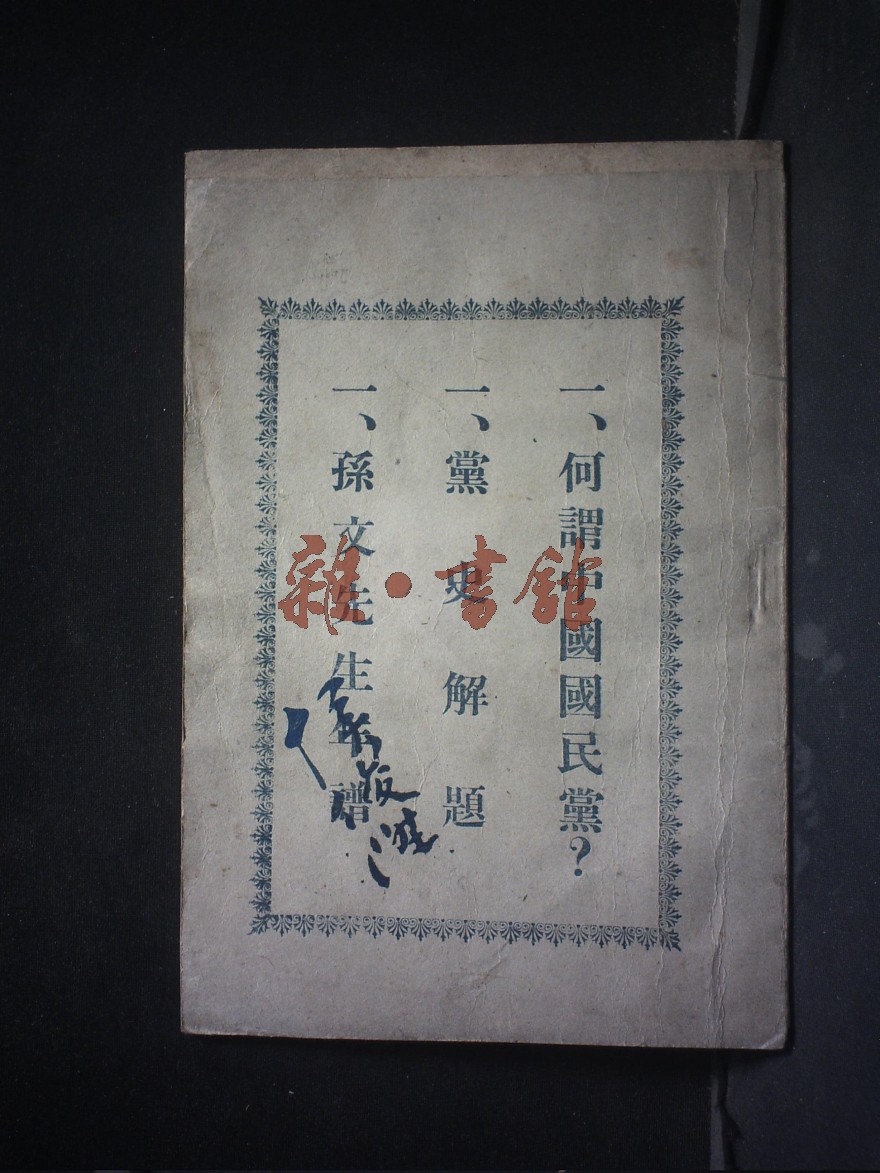 一、何謂中國國民黨？
一、黨史解題
一、孫文先生年譜
雜·書館